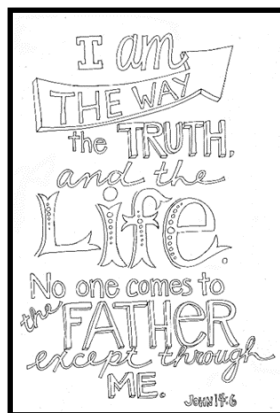 I am
THE WAY
the TRUTH,
and the
Life.
No one comes to
the FATHER
except through
ME.
JOHN 14:6